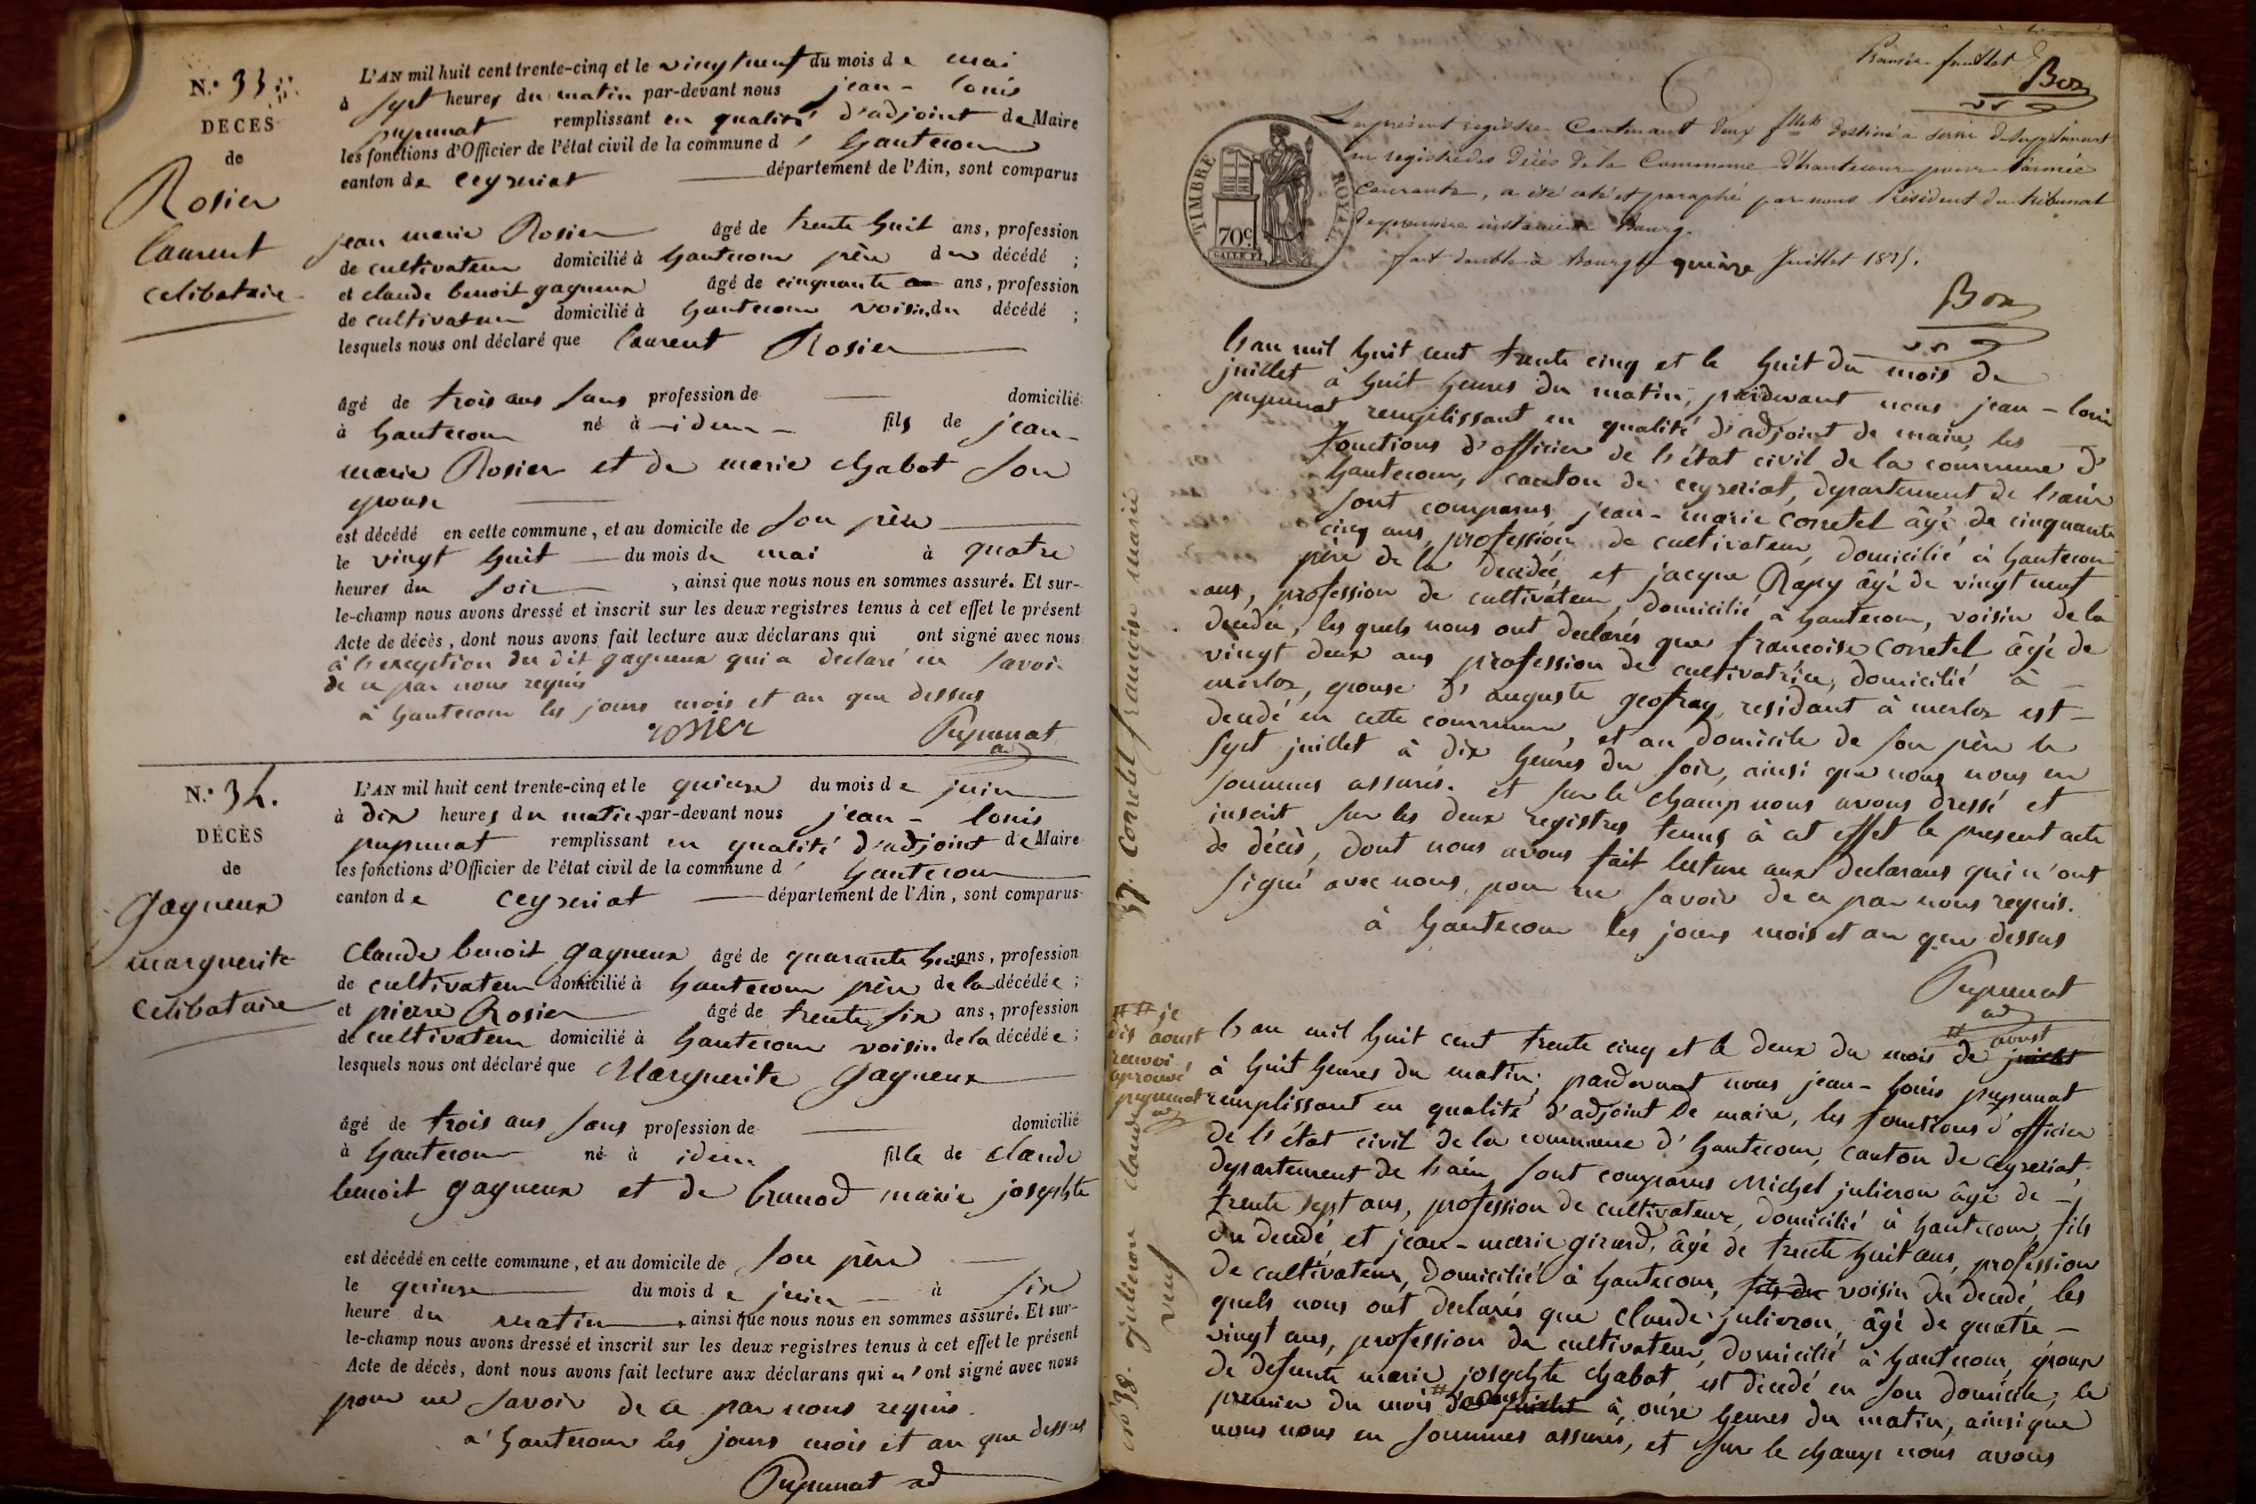 N.° 33
DECES
de
Rosier
laurent
celibataire
L'AN mil huit cent trente-cinq et le vingt neuf du mois de mai
à sept heures du matin par-devant nous jean - louis
pupunat remplissant en qualité d'adjoint de Maire
les fonctions d'Officier de l'état civil de la commune d' hautecour
canton de ceyzeriat département de l'Ain, sont comparus
jean marie Rosier âgé de trente huit ans, profession
de cultivateur domicilié à hautecour père du décédé ;
et claude benoit gagneux âgé de cinquante ans, profession
de cultivateur domicilié à hautecour voisin du décédé ;
lesquels nous ont déclaré que laurent Rosier
âgé de trois ans sans profession de domicilié
à hautecour né à idem fils de jean-
marie Rosier et de marie chabot son
epouse
est décédé en cette commune, et au domicile de son père
le vingt huit du mois de mai à quatre
heures du soir, ainsi que nous nous en sommes assuré. Et sur-
le-champ nous avons dressé et inscrit sur les deux registres tenus à cet effet le présent
Acte de décès, dont nous avons fait lecture aux déclarans qui ont signé avec nous
à l'exception du dit gagneux qui a declaré ne savoir
de ce par nous requis
à hautecour les jours mois et an que dessus
rosier Pupunat
ad
N.° 34.
DÉCÈS
de
gagneux
marguerite
celibataire
L'AN mil huit cent trente-cinq et le quinze du mois de juin
à dix heures du matin par-devant nous jean - louis
pupunat remplissant en qualité d'adjoint de Maire
les fonctions d'Officier de l'état civil de la commune d' hautecour
canton de ceyzeriat département de l'Ain, sont comparus
claude benoit gagneux âgé de quarante huit ans, profession
de cultivateur domicilié à hautecour père de la décédée ;
et pierre Rosier âgé de trente six ans, profession
de cultivateur domicilié à hautecour voisin de la décédée ;
lesquels nous ont déclaré que Marguerite gagneux
âgé de trois ans sans profession de domicilié
à hautecour né à idem fille de claude
benoit gagneux et de brunod marie josephte
est décédé en cette commune, et au domicile de son père
le quinze du mois de juin à six
heure du matin, ainsi que nous nous en sommes assuré. Et sur-
le-champ nous avons dressé et inscrit sur les deux registres tenus à cet effet le présent
Acte de décès, dont nous avons fait lecture aux déclarans qui n'ont signé avec nous
pour ne savoir de ce par nous requis.
à hautecour les jours mois et an que dessus
Pupunat ad
feuillet
Bon
TIMBRE ROYAL
70c
Le présent registre contenant deux flets destiné a servir de supplément
au registre des décès de la Commune d'hautecour pour l'année
courante, a été coté et paraphé par nous Président du tribunal
de première instance Bourg.
fait double à Bourg le quinze Juillet 1835.
Bon
37. Corretel francoise marié
l'an mil huit cent trente cinq et le huit du mois de
juillet à huit heures du matin, pardevant nous jean - louis
pupunat remplissant en qualité d'adjoint de maire, les
fonctions d'officier de l'état civil de la commune d'
hautecour, canton de ceyzeriat, departement de l'ain
sont comparus jean - marie corretel âgé de cinquante
cinq ans, profession de cultivateur, domicilié à hautecour
père de la decédée, et jacque Rapy âgé de vingt neuf
ans, profession de cultivateur, domicilié à hautecour, voisin de la
decédée, les quels nous ont declarés que francoise corretel âgé de
vingt deux ans profession de cultivatrice, domicilié à
merloz, epouse d'auguste geofray, residant à merloz est
decedé en cette commune, et au domicile de son père le
sept juillet à dix heures du soir, ainsi que nous nous en
sommes assurés. et sur le champ nous avons dressé et
inscrit sur les deux registres tenus à cet effet le present acte
de décès, dont nous avons fait lecture aux declarans qui n'ont
signé avec nous, pour ne savoir de ce par nous requis.
à hautecour les jours mois et an que dessus
Pupunat
ad
## je
dis aoust
renvoi
aprouvé
pupunat
ad
n° 38. julieron claude
veuf
l'an mil huit cent trente cinq et le deux du mois de # aoust juillet
à huit heures du matin, pardevant nous jean - louis pupunat
remplissant en qualité d'adjoint de maire, les fonctions d'officier
de l'état civil de la commune d'hautecour, canton de ceyzeriat,
departement de l'ain sont comparus Michel julieron âgé de
trente sept ans, profession de cultivateur, domicilié à hautecour, fils
du decedé, et jean - marie girard, âgé de trente huit ans, profession
de cultivateur, domicilié à hautecour, fils du voisin du decedé, les
quels nous ont declarés que claude julieron, âgé de quatre -
vingt ans, profession de cultivateur, domicilié à hautecour, époux
de defunte marie josephte chabot est decedé en son domicile, le
premier du mois # d'aoust juillet à onze heures du matin, ainsi que
nous nous en sommes assurés, et sur le champ nous avons